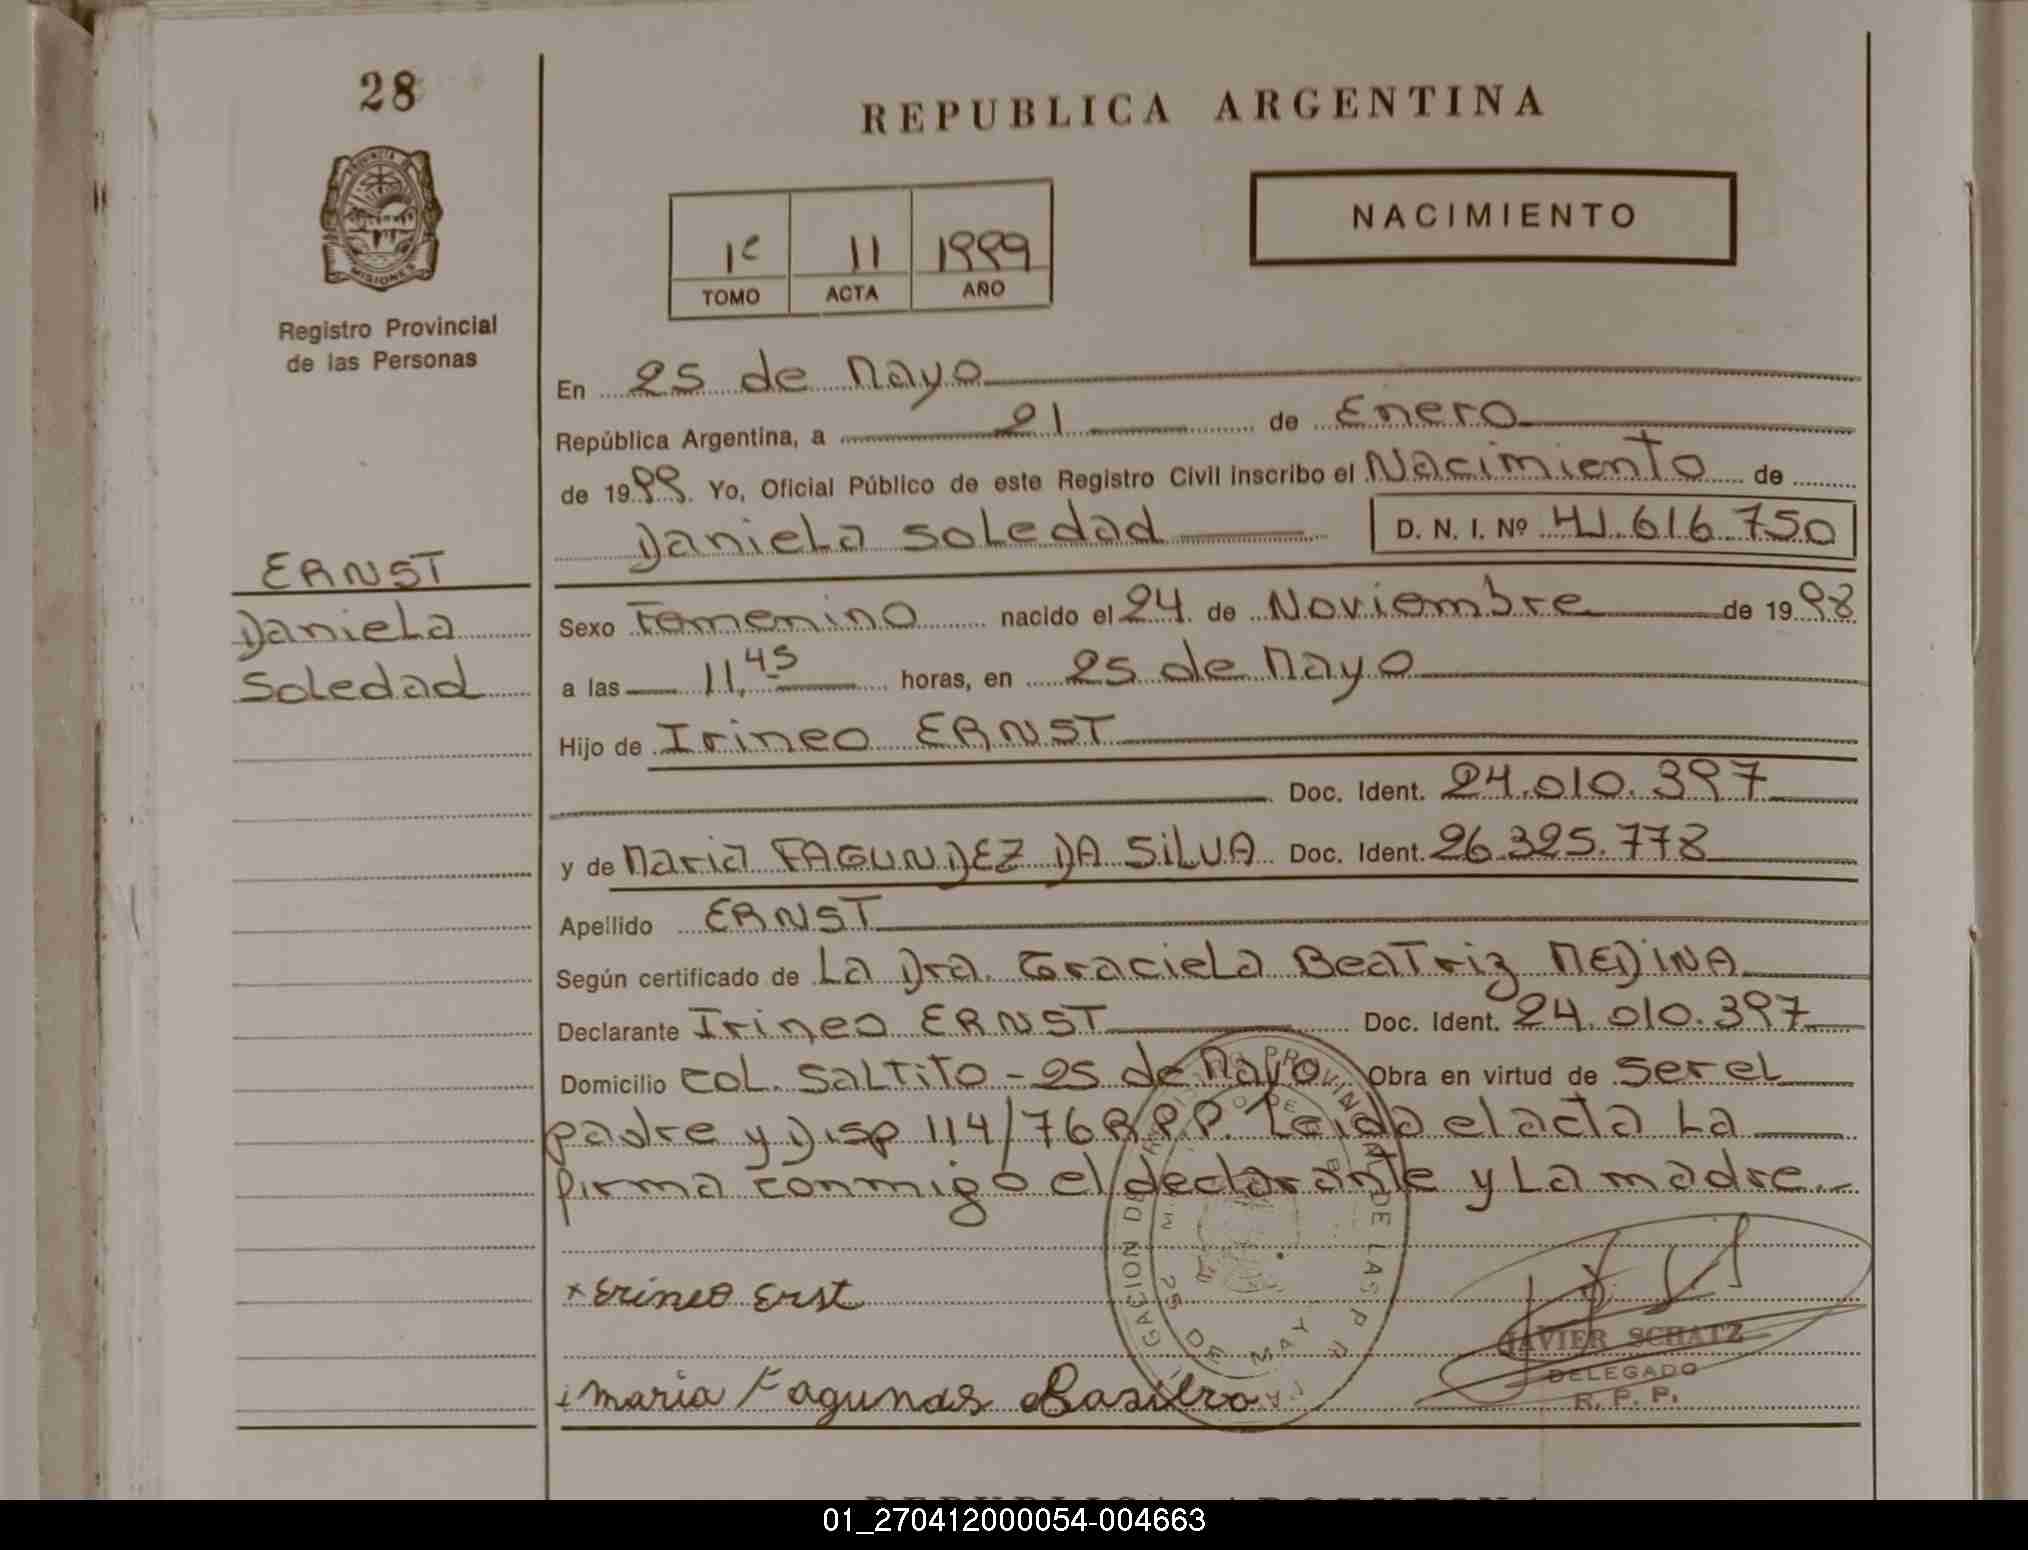 28
REPUBLICA ARGENTINA
NACIMIENTO
PROVINCIA DE
MISIONES
1º 11 1999
TOMO ACTA AÑO
Registro Provincial
de las Personas
En 25 de Mayo
República Argentina, a 21 de Enero
de 1999. Yo, Oficial Público de este Registro Civil inscribo el Nacimiento de
Daniela Soledad D. N. I. Nº 41.616.750
ERNST
Daniela
Soledad
Sexo Femenino nacido el 24 de Noviembre de 1998
a las 11,45 horas, en 25 de Mayo
Hijo de Irineo ERNST
Doc. Ident. 24.010.397
y de Maria FAGUNDEZ DA SILVA Doc. Ident. 26.325.778
Apellido ERNST
Según certificado de La Dra. Graciela Beatriz MEDINA
Declarante Irineo ERNST Doc. Ident. 24.010.397
Domicilio COL. SALTITO - 25 de Mayo Obra en virtud de ser el
padre y Disp 114/76 R.P.P. Leida el acta La
firma conmigo el declarante y La madre..
x Erineo Erst
JAVIER SCHATZ
DELEGADO
R. P. P.
maria Fagundes
25 DE MAYO
01_270412000054-004663